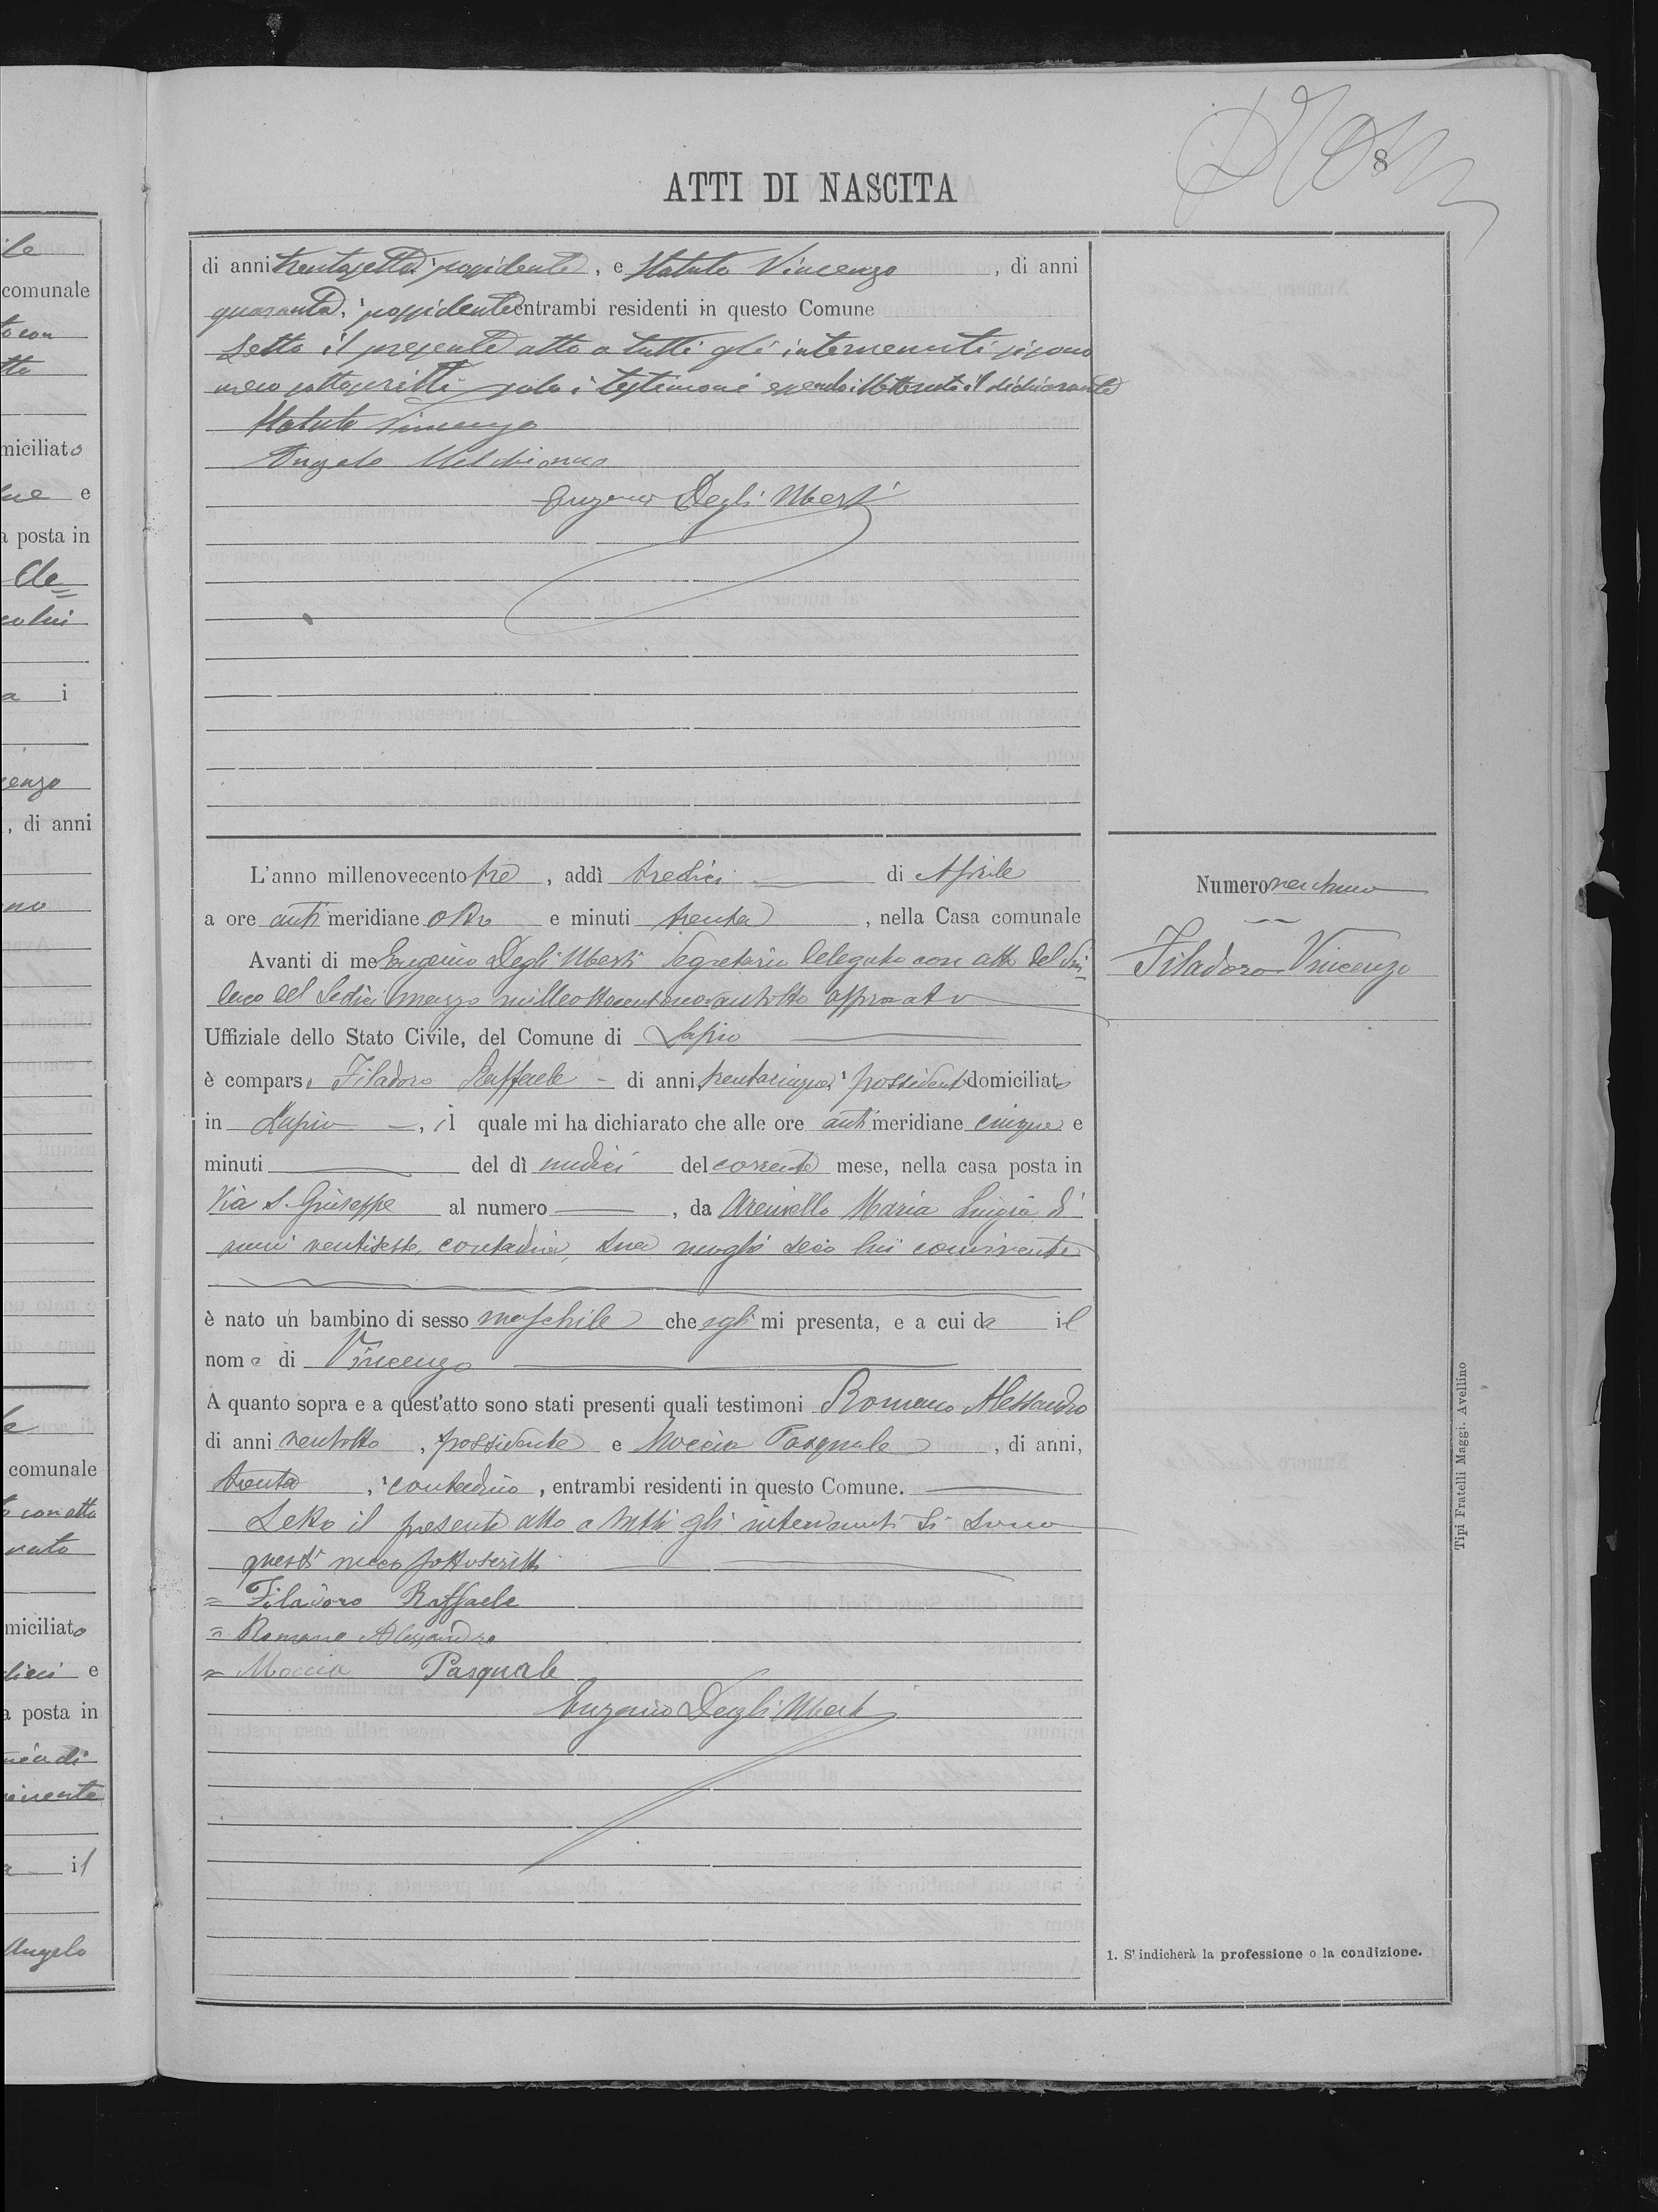 8
ATTI DI NASCITA
di anni trentasette, possidente, e Statuto Vincenzo, di anni
quaranta, possidente entrambi residenti in questo Comune
Letto il presente atto a tutti gli intervenuti si sono
meco sottoscritti solo i testimoni essendo illetterato il dichiarante
Statuto Vincenzo
Angelo Melchionna
Eugenio Degli Uberti
L'anno millenovecento tre, addì tredici di Aprile
a ore anti meridiane otto e minuti trenta, nella Casa comunale
Avanti di me Eugenio Degli Uberti Segretario Delegato con atto del Sin-
daco del Sedici marzo milleottocentonovantotto approvato
Uffiziale dello Stato Civile, del Comune di Lapio
è comparso Filadoro Raffaele di anni trentacinque, possidente domiciliato
in Lapio, il quale mi ha dichiarato che alle ore anti meridiane cinque e
minuti del dì undici del corrente mese, nella casa posta in
Via S. Giuseppe al numero, da Areniello Maria Luigia di
anni ventisette, contadina, sua moglie seco lui convivente
è nato un bambino di sesso maschile che egli mi presenta, e a cui da il
nome di Vincenzo
A quanto sopra e a quest'atto sono stati presenti quali testimoni Romano Alessandro
di anni ventotto, possidente e Moccia Pasquale, di anni,
trenta, contadino, entrambi residenti in questo Comune.
Letto il presente atto a tutti gli intervenuti si sono
questi meco sottoscritti
= Filadoro Raffaele
= Romano Alessandro
= Moccia Pasquale
Eugenio Degli Uberti
Numero ventuno
Filadoro Vincenzo
1. S'indicherà la professione o la condizione.
Tipi Fratelli Maggi. Avellino
le
comunale
to con
tto
miciliato
e
a posta in
a i
cenzo
, di anni
no
comunale
o con atto
vato
miciliato
dieci e
a posta in
il
Angelo